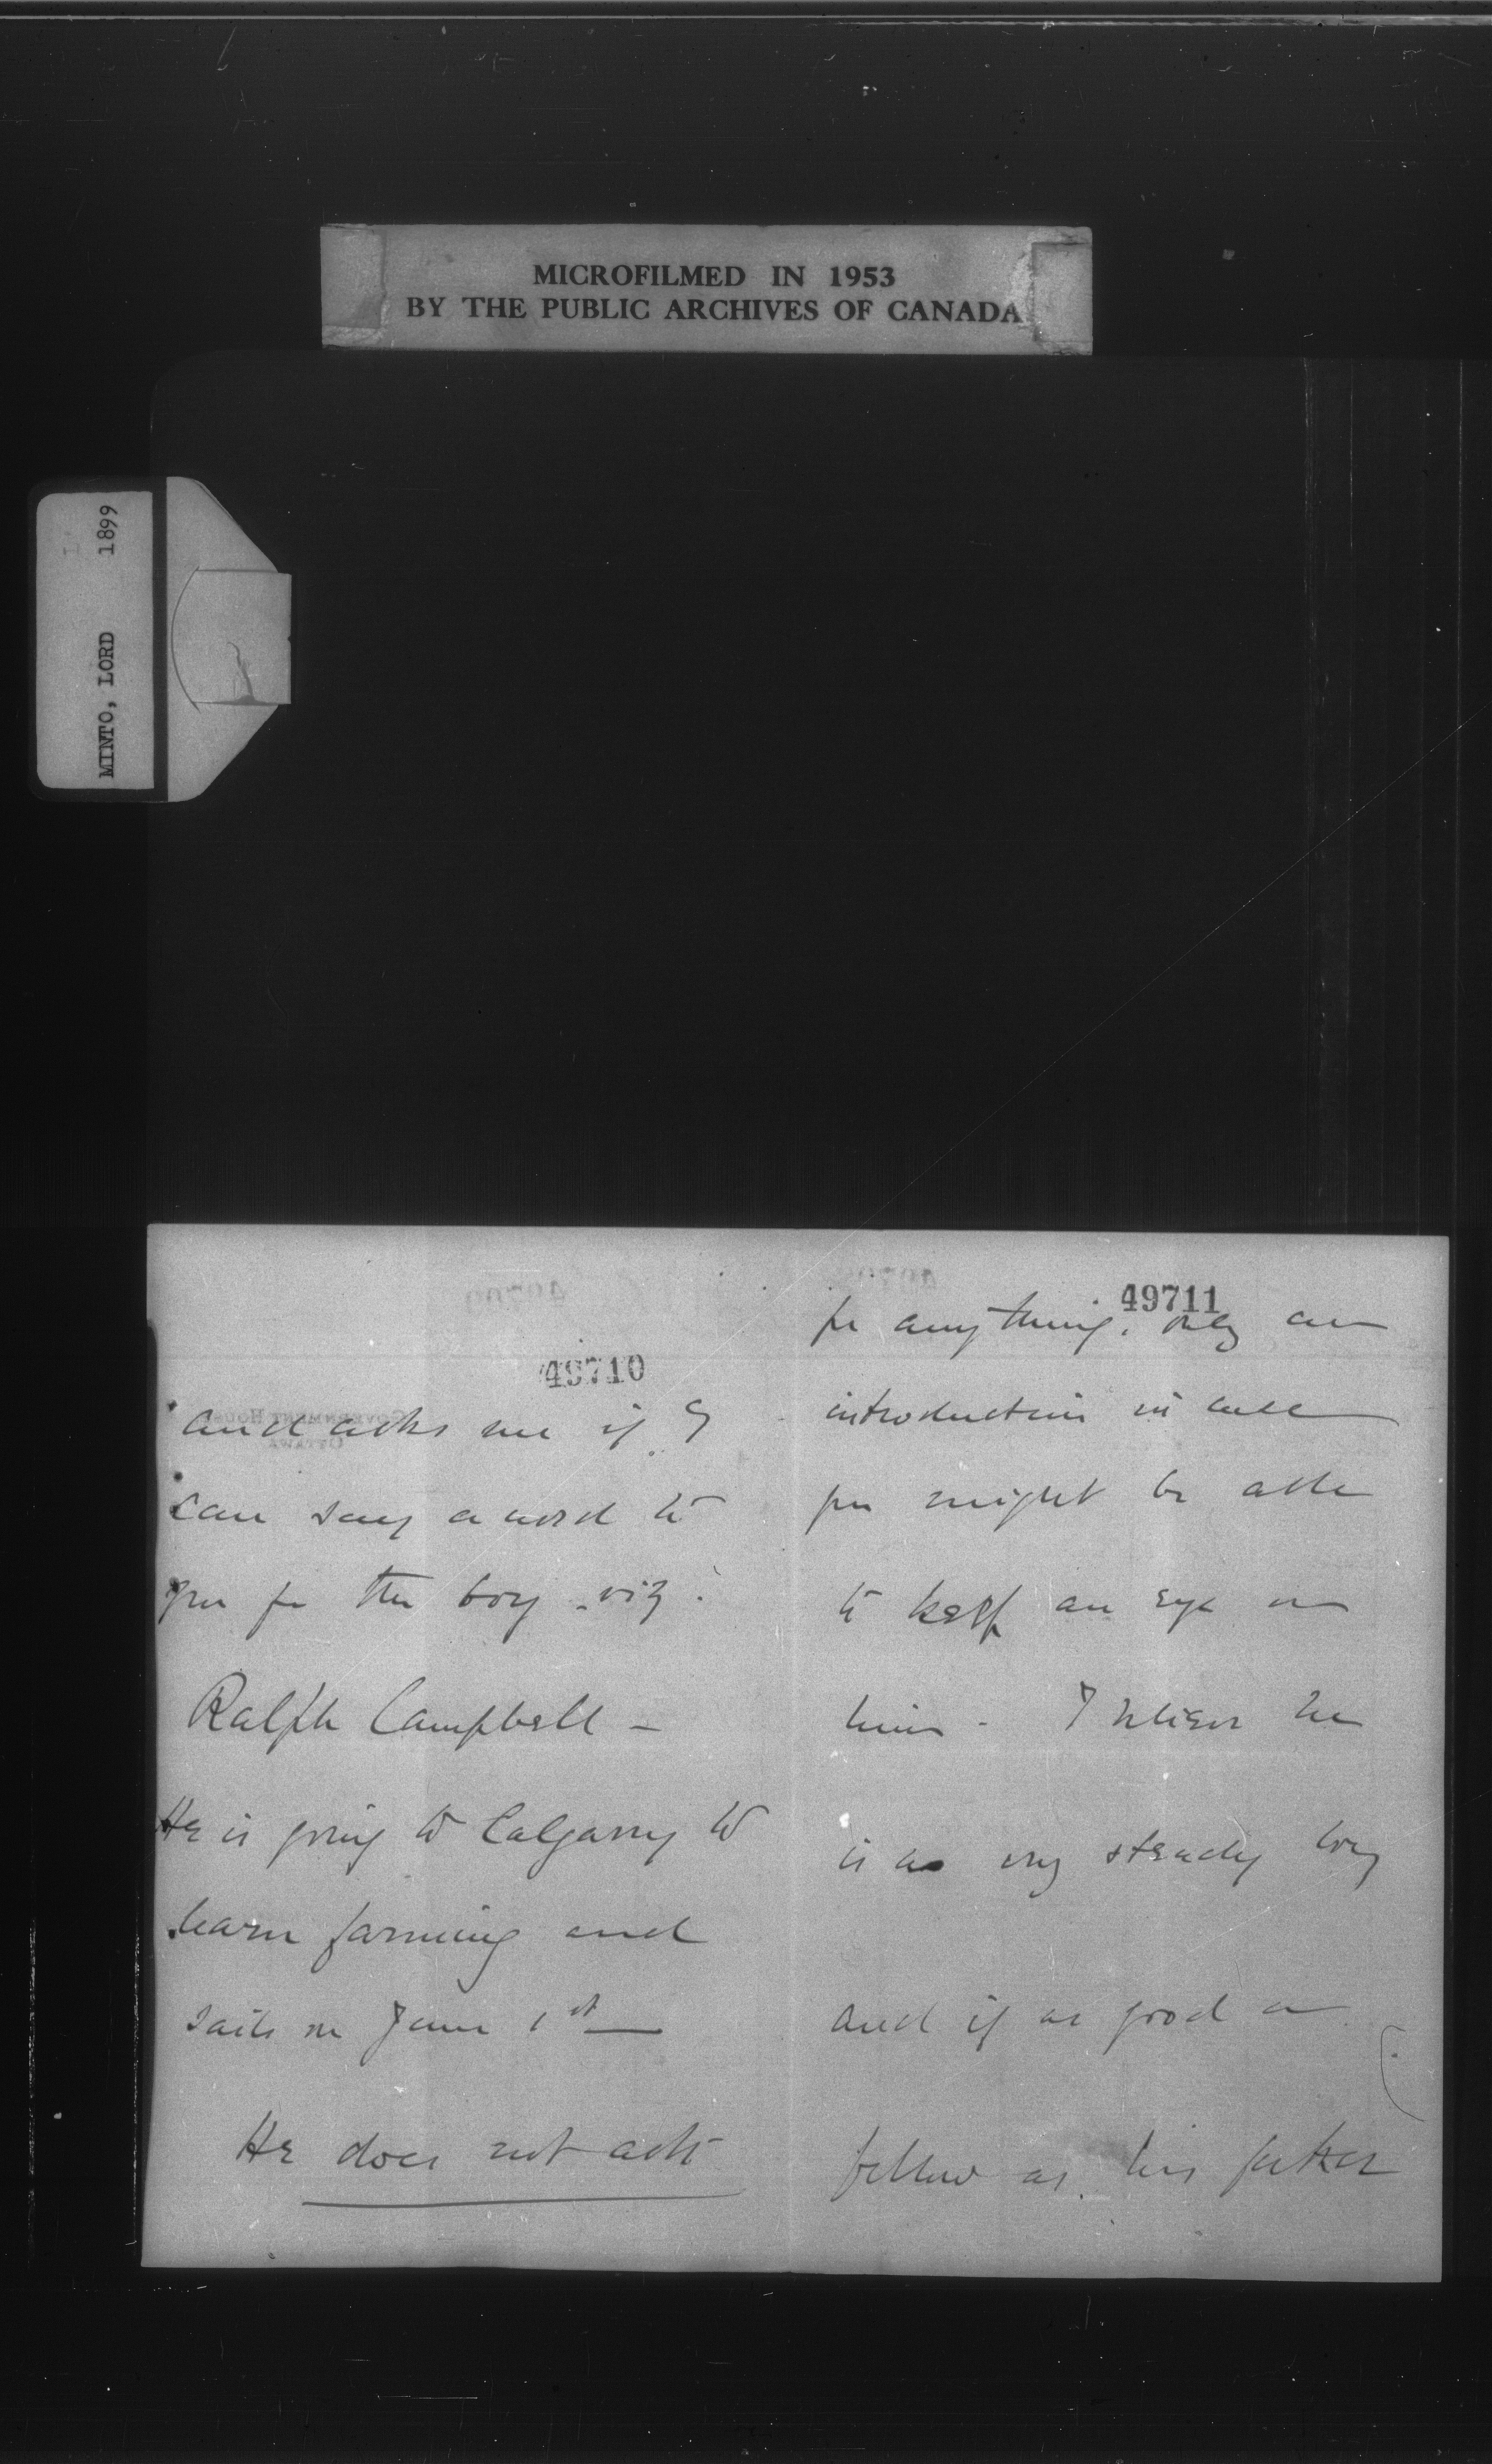 MICROFILMED IN 1953
BY THE PUBLIC ARCHIVES OF CANADA
MINTO, LORD 1899
49710
and asks me if I
can say a word to
you for the boy - viz:
Ralph Campbell -
He is going to Calgary to
learn farming and
sails on June 1st —
He does not ask
49711
for anything, only an
introduction in case
you might be able
to keep an eye on
him - I believe he
is a very steady boy
and if as good a
fellow as his father